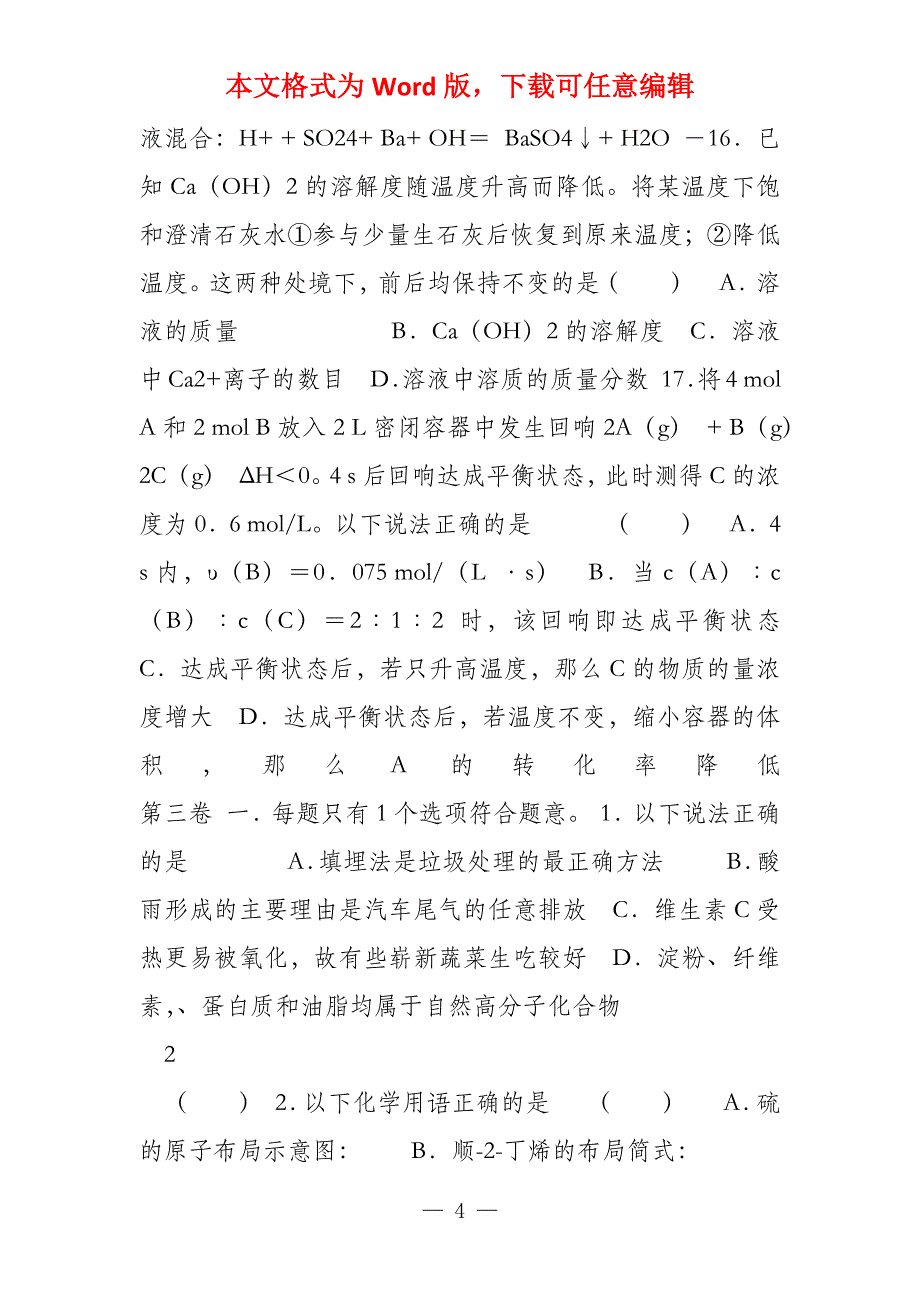 本文格式为 Word 版，下载可任意编辑
液混合：H+ + SO24+ Ba+ OH＝ BaSO4↓+ H2O －16．已
知 Ca（OH）2 的溶解度随温度升高而降低。将某温度下饱
和澄清石灰水①参与少量生石灰后恢复到原来温度；②降低
温度。这两种处境下，前后均保持不变的是（　　） A．溶
液的质量 B．Ca（OH）2 的溶解度 C．溶液
中 Ca2+离子的数目 D.溶液中溶质的质量分数 17.将 4 mol
A 和 2 mol B 放入 2 L 密闭容器中发生回响 2A（g） + B（g)
2C（g） ΔH＜0。4 s 后回响达成平衡状态，此时测得 C 的浓
度为 0．6 mol/L。以下说法正确的是 （　　） A．4
s 内，υ（B）＝0．075 mol/（L ·s） B．当 c（A）∶c
（B）∶c（C）＝2∶1∶2 时，该回响即达成平衡状态
C．达成平衡状态后，若只升高温度，那么 C 的物质的量浓
度增大 D．达成平衡状态后，若温度不变，缩小容器的体
积，那么 A 的转化率降低
第三卷 一．每题只有 1 个选项符合题意。 1．以下说法正确
的是 A.填埋法是垃圾处理的最正确方法 B.酸
雨形成的主要理由是汽车尾气的任意排放 C．维生素 C 受
热更易被氧化，故有些崭新蔬菜生吃较好 D．淀粉、纤维
素,、蛋白质和油脂均属于自然高分子化合物
2
（　　） 2．以下化学用语正确的是 （　　） A．硫
的原子布局示意图： B．顺-2-丁烯的布局简式：
— 4 —